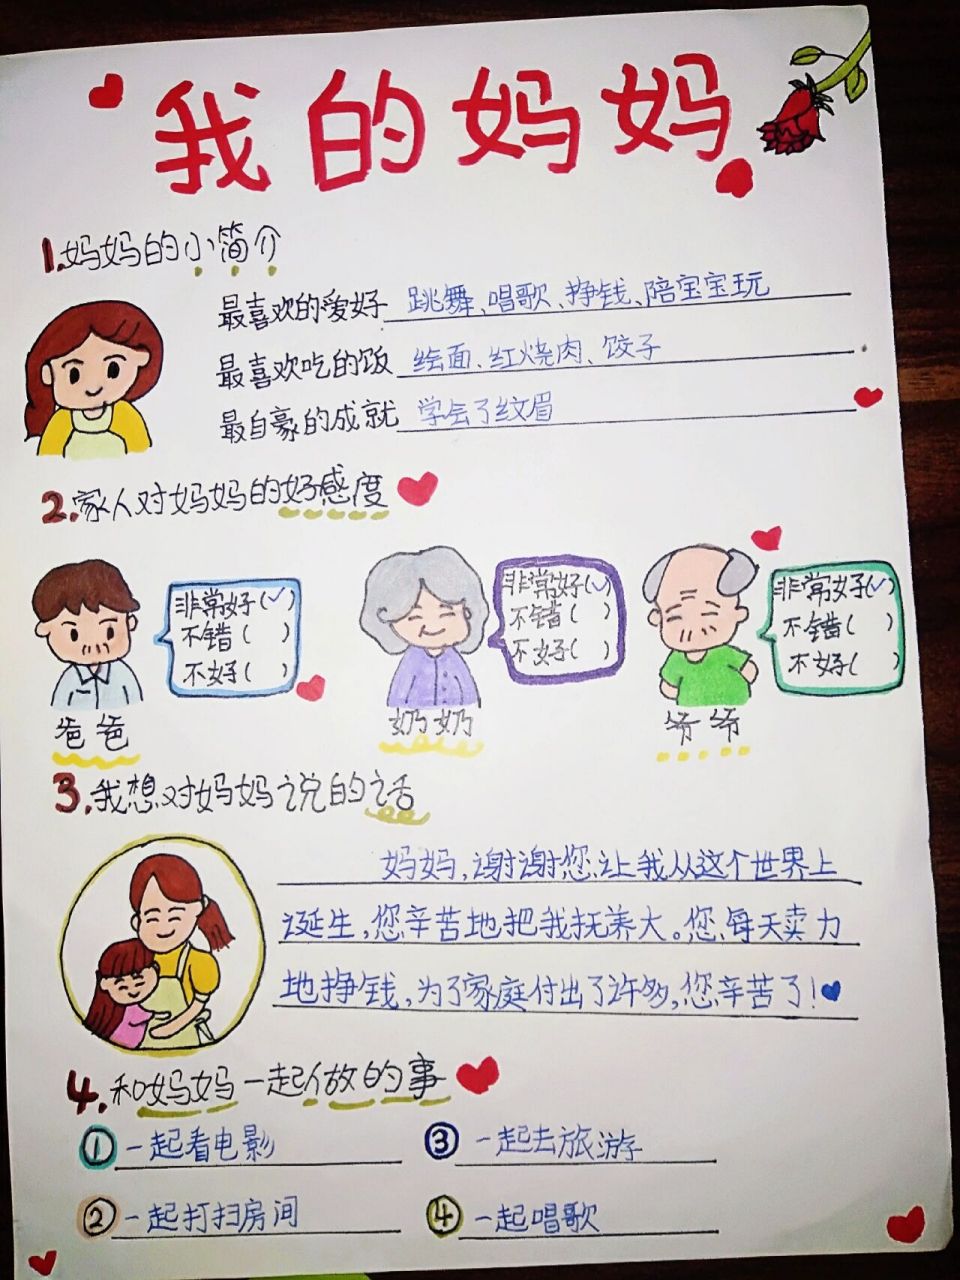 我的妈妈
1.妈妈的小简介
最喜欢的爱好 跳舞、唱歌、挣钱、陪宝宝玩
最喜欢吃的饭 烩面、红烧肉、饺子
最自豪的成就 学会了纹眉
2.家人对妈妈的好感度
非常好(✓)
不错( )
不好( )
爸爸
非常好(✓)
不错( )
不好( )
奶奶
非常好(✓)
不错( )
不好( )
爷爷
3.我想对妈妈说的话
妈妈,谢谢您让我从这个世界上
诞生,您辛苦地把我抚养大。您每天卖力
地挣钱,为了家庭付出了许多,您辛苦了!
4.和妈妈一起做的事
① 一起看电影
② 一起打扫房间
③ 一起去旅游
④ 一起唱歌